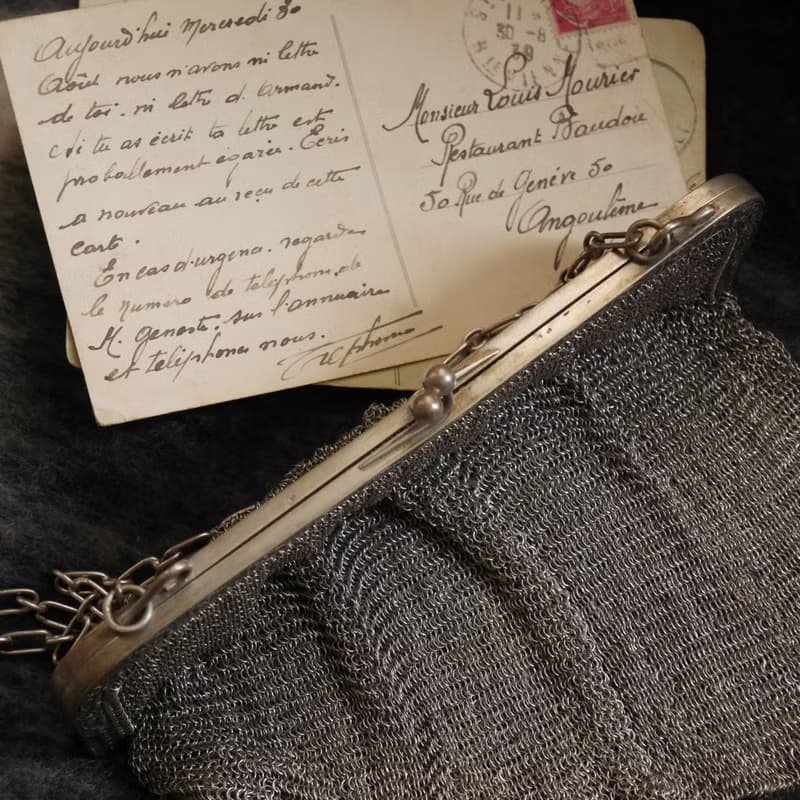 Aujourd'hui Mercredi 30
Août nous n'avons ni lettre
de toi. ni lettre d'Armand.
si tu as écrit ta lettre est
probablement égarée. Ecris
a nouveau au reçu de cette
carte.
En cas d'urgence. regarde
le numero de telephone de
M. Geneste. sur l'annuaire
et telephone nous.
11
30-8
39
VIENNE
Monsieur Louis Mourier
Restaurant Baudou
50 Rue de Genève 50
Angoulême